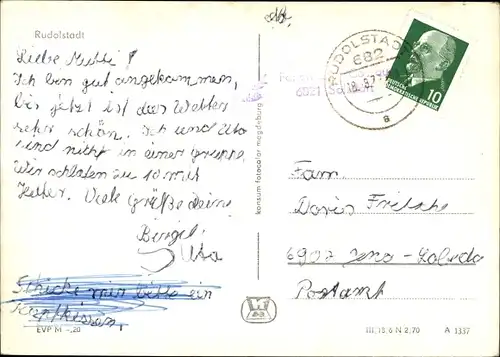 Rudolstadt
Liebe Mutti!
Ich bin gut angekommen,
bis jetzt ist das Wetter
sehr schön. Ich und Uta
sind nicht in einer Gruppe
Wir schlafen zu 10 mit
Keller. Viele Grüße deine
Birgit
Uta
Schicke mir bitte ein
Kopfkissen.
EVP M -,20
konsum fotocolor magdeburg
RUDOLSTADT
682
a
DEUTSCHE
DEMOKRATISCHE REPUBLIK
10
Fam
Doris Fritsche
6902 Jena-Lobeda
Postamt
III/18/6 N 2/70 A 1337